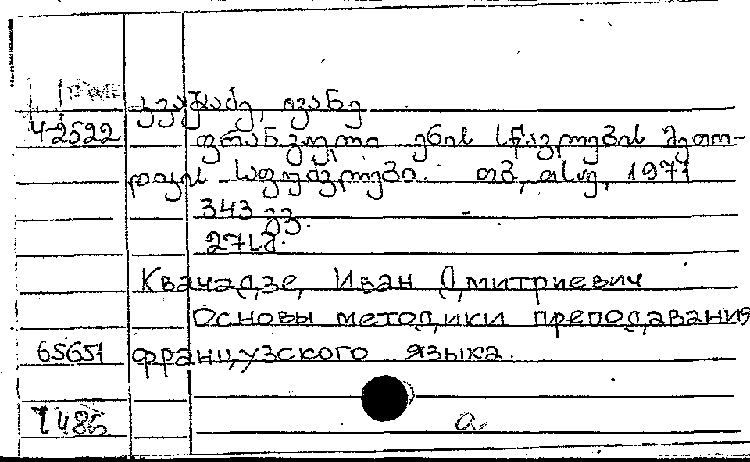 კვაჭაძე, ივანე
4-2522 ფრანგული ენის სწავლების მეთო-
დიკის საფუძვლები. თბ., თსუ, 1971
343 გვ.
271ც.
Квачадзе, Иван Дмитриевич
Основы методики преподавания
65651 французского языка.
а.